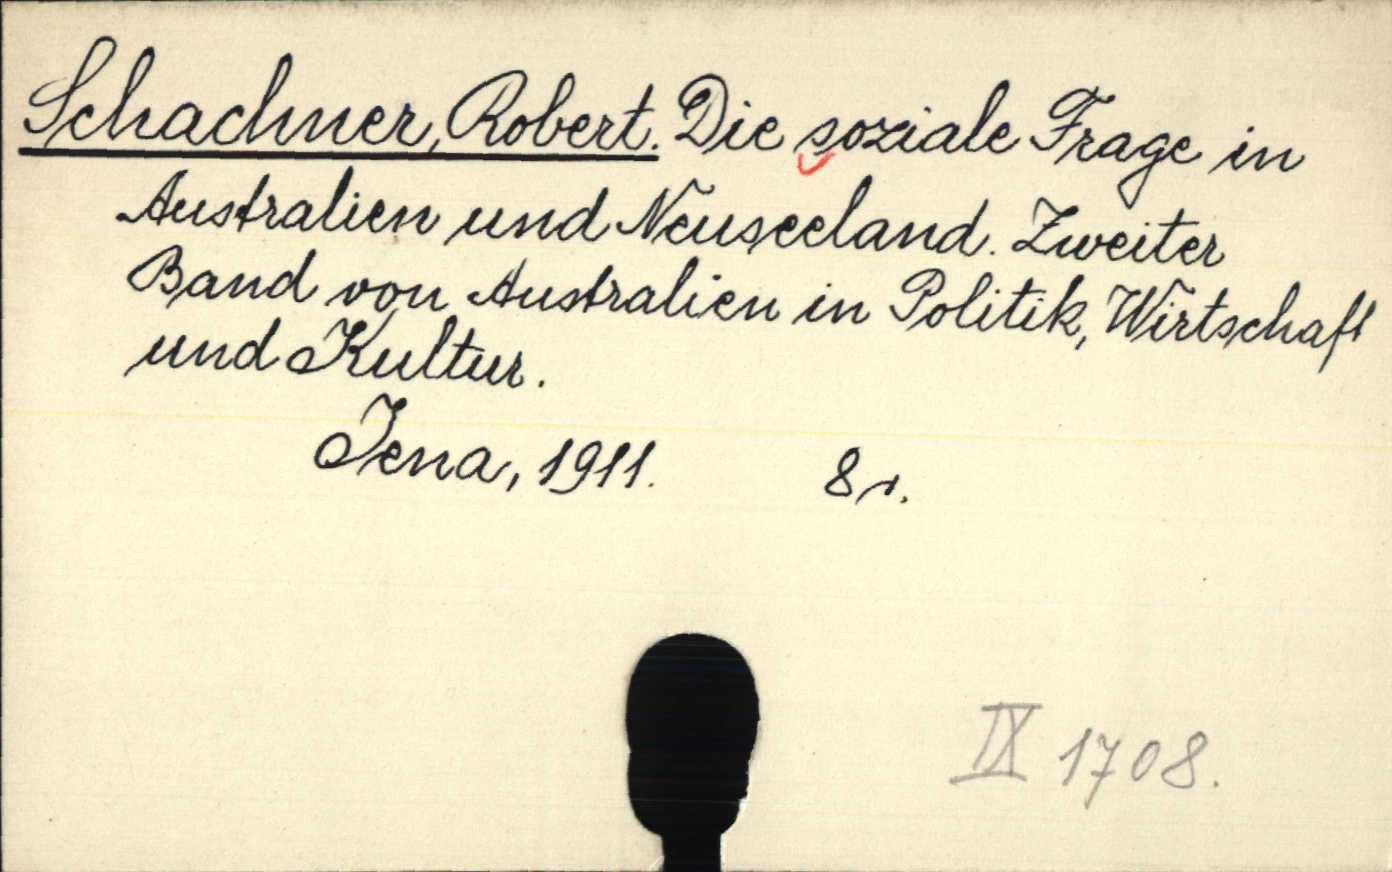 Schachner, Robert. Die soziale Frage in
Australien und Neuseeland. Zweiter
Band von Australien in Politik, Wirtschaft
und Kultur.
Jena, 1911. 8 r.
IX 1708.